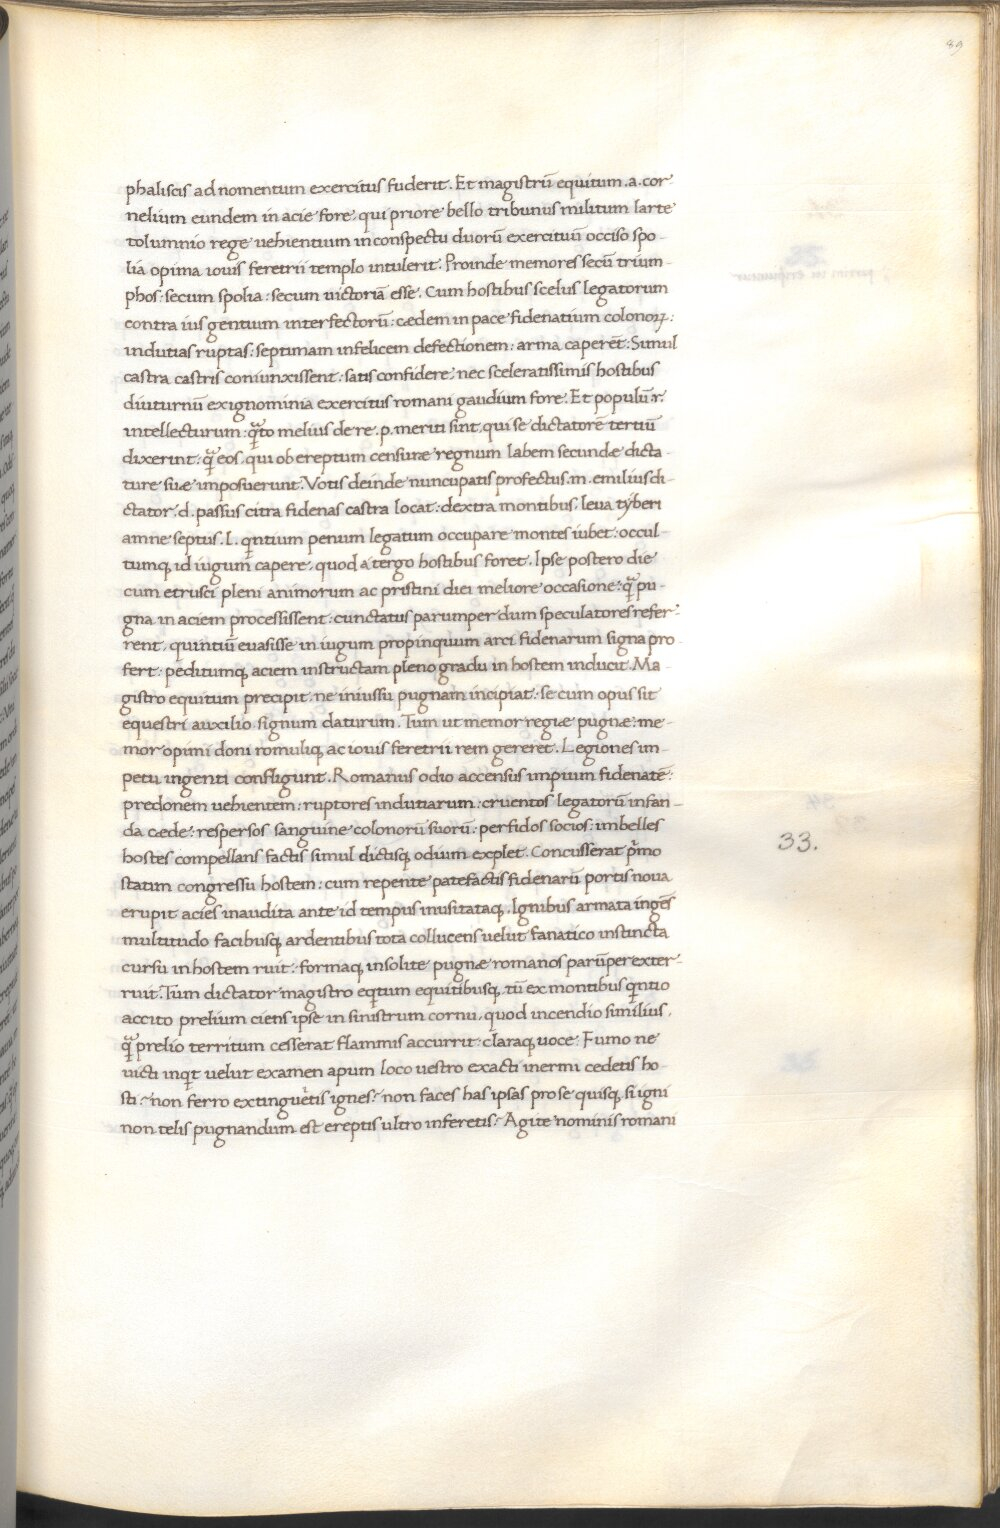 89
phaliscis ad nomentum exercitus fuderit. Et magistrū equitum .a. cor
nelium eundem in acie fore, qui priore bello tribunus militum larte
tolumnio rege uehientium in conspectu duorū exercituū occiso spo-
lia opima iouis feretrii templo intulerit. Proinde memores secū trium-
phos: secum spolia: secum uictoriā esse. Cum hostibus scelus legatorum
contra ius gentium interfectorū: cædem in pace fidenatium colonoꝝ:
indutias ruptas: septimam infelicem defectionem: arma caperēt. Simul
castra castris coniunxissent: satis confidere, nec sceleratissimis hostibus
diuturnū ex ignominia exercitus romani gaudium fore. Et populū .r.
intellecturum: q̄to melius de re .p. meriti sint, qui se dictatorē tertiū
dixerint: q̄ eos, qui ob ereptum censuræ regnum labem secundæ dicta-
ture suæ imposuerunt. Votis deinde nuncupatis profectus .m. emilius di-
ctator .d. passus citra fidenas castra locat: dextra montibus, leua tyberi
amne septus. L. q̄ntium penum legatum occupare montes iubet: occul-
tumq; id iugum capere, quod a tergo hostibus foret. Ipse postero die
cum etrusci pleni animorum ac pristini diei meliore occasione: q̄ pu-
gna in aciem processissent: cunctatus parumper dum speculatores refer-
rent, quintiū euasisse in iugum propinquum arci fidenarum signa pro
fert: peditumq; aciem instructam pleno gradu in hostem inducit. Ma
gistro equitum precipit, ne iniussu pugnam incipiat: se cum opus sit
equestri auxilio signum daturum. Tum ut memor regiæ pugnæ: me-
mor opimi doni romuliq; ac iouis feretrii rem gereret. Legiones im-
petu ingenti confligunt. Romanus odio accensus impium fidenatē:
predonem uehientem: ruptores indutiarum: cruentos legatorū infan-
da cæde: respersos sanguine colonorū suorū: perfidos socios: imbelles
hostes compellans factis simul dictisq; odium explet. Concusserat p̄mo
33.
statim congressu hostem: cum repente patefactis fidenarū portis noua
erupit acies inaudita ante id tempus inusitataq;. Ignibus armata ingēs
multitudo facibusq; ardentibus tota collucens uelut fanatico instincta
cursu in hostem ruit: formaq; insolite pugnæ romanos parūper exter-
ruit. Tum dictator magistro eq̄tum equitibusq; tū ex montibus q̄ntio
accito prelium ciens ipse in sinistrum cornu, quod incendio similius,
q̄ prelio territum cesserat flammis accurrit: claraq; uoce: Fumo ne
uicti inq̄t uelut examen apum loco uestro exacti inermi cedetis ho-
sti: non ferro extinguetis ignes: non faces has ipsas pro se quisq; si igni
non telis pugnandum est ereptis ultro inferetis: Agite nominis romani